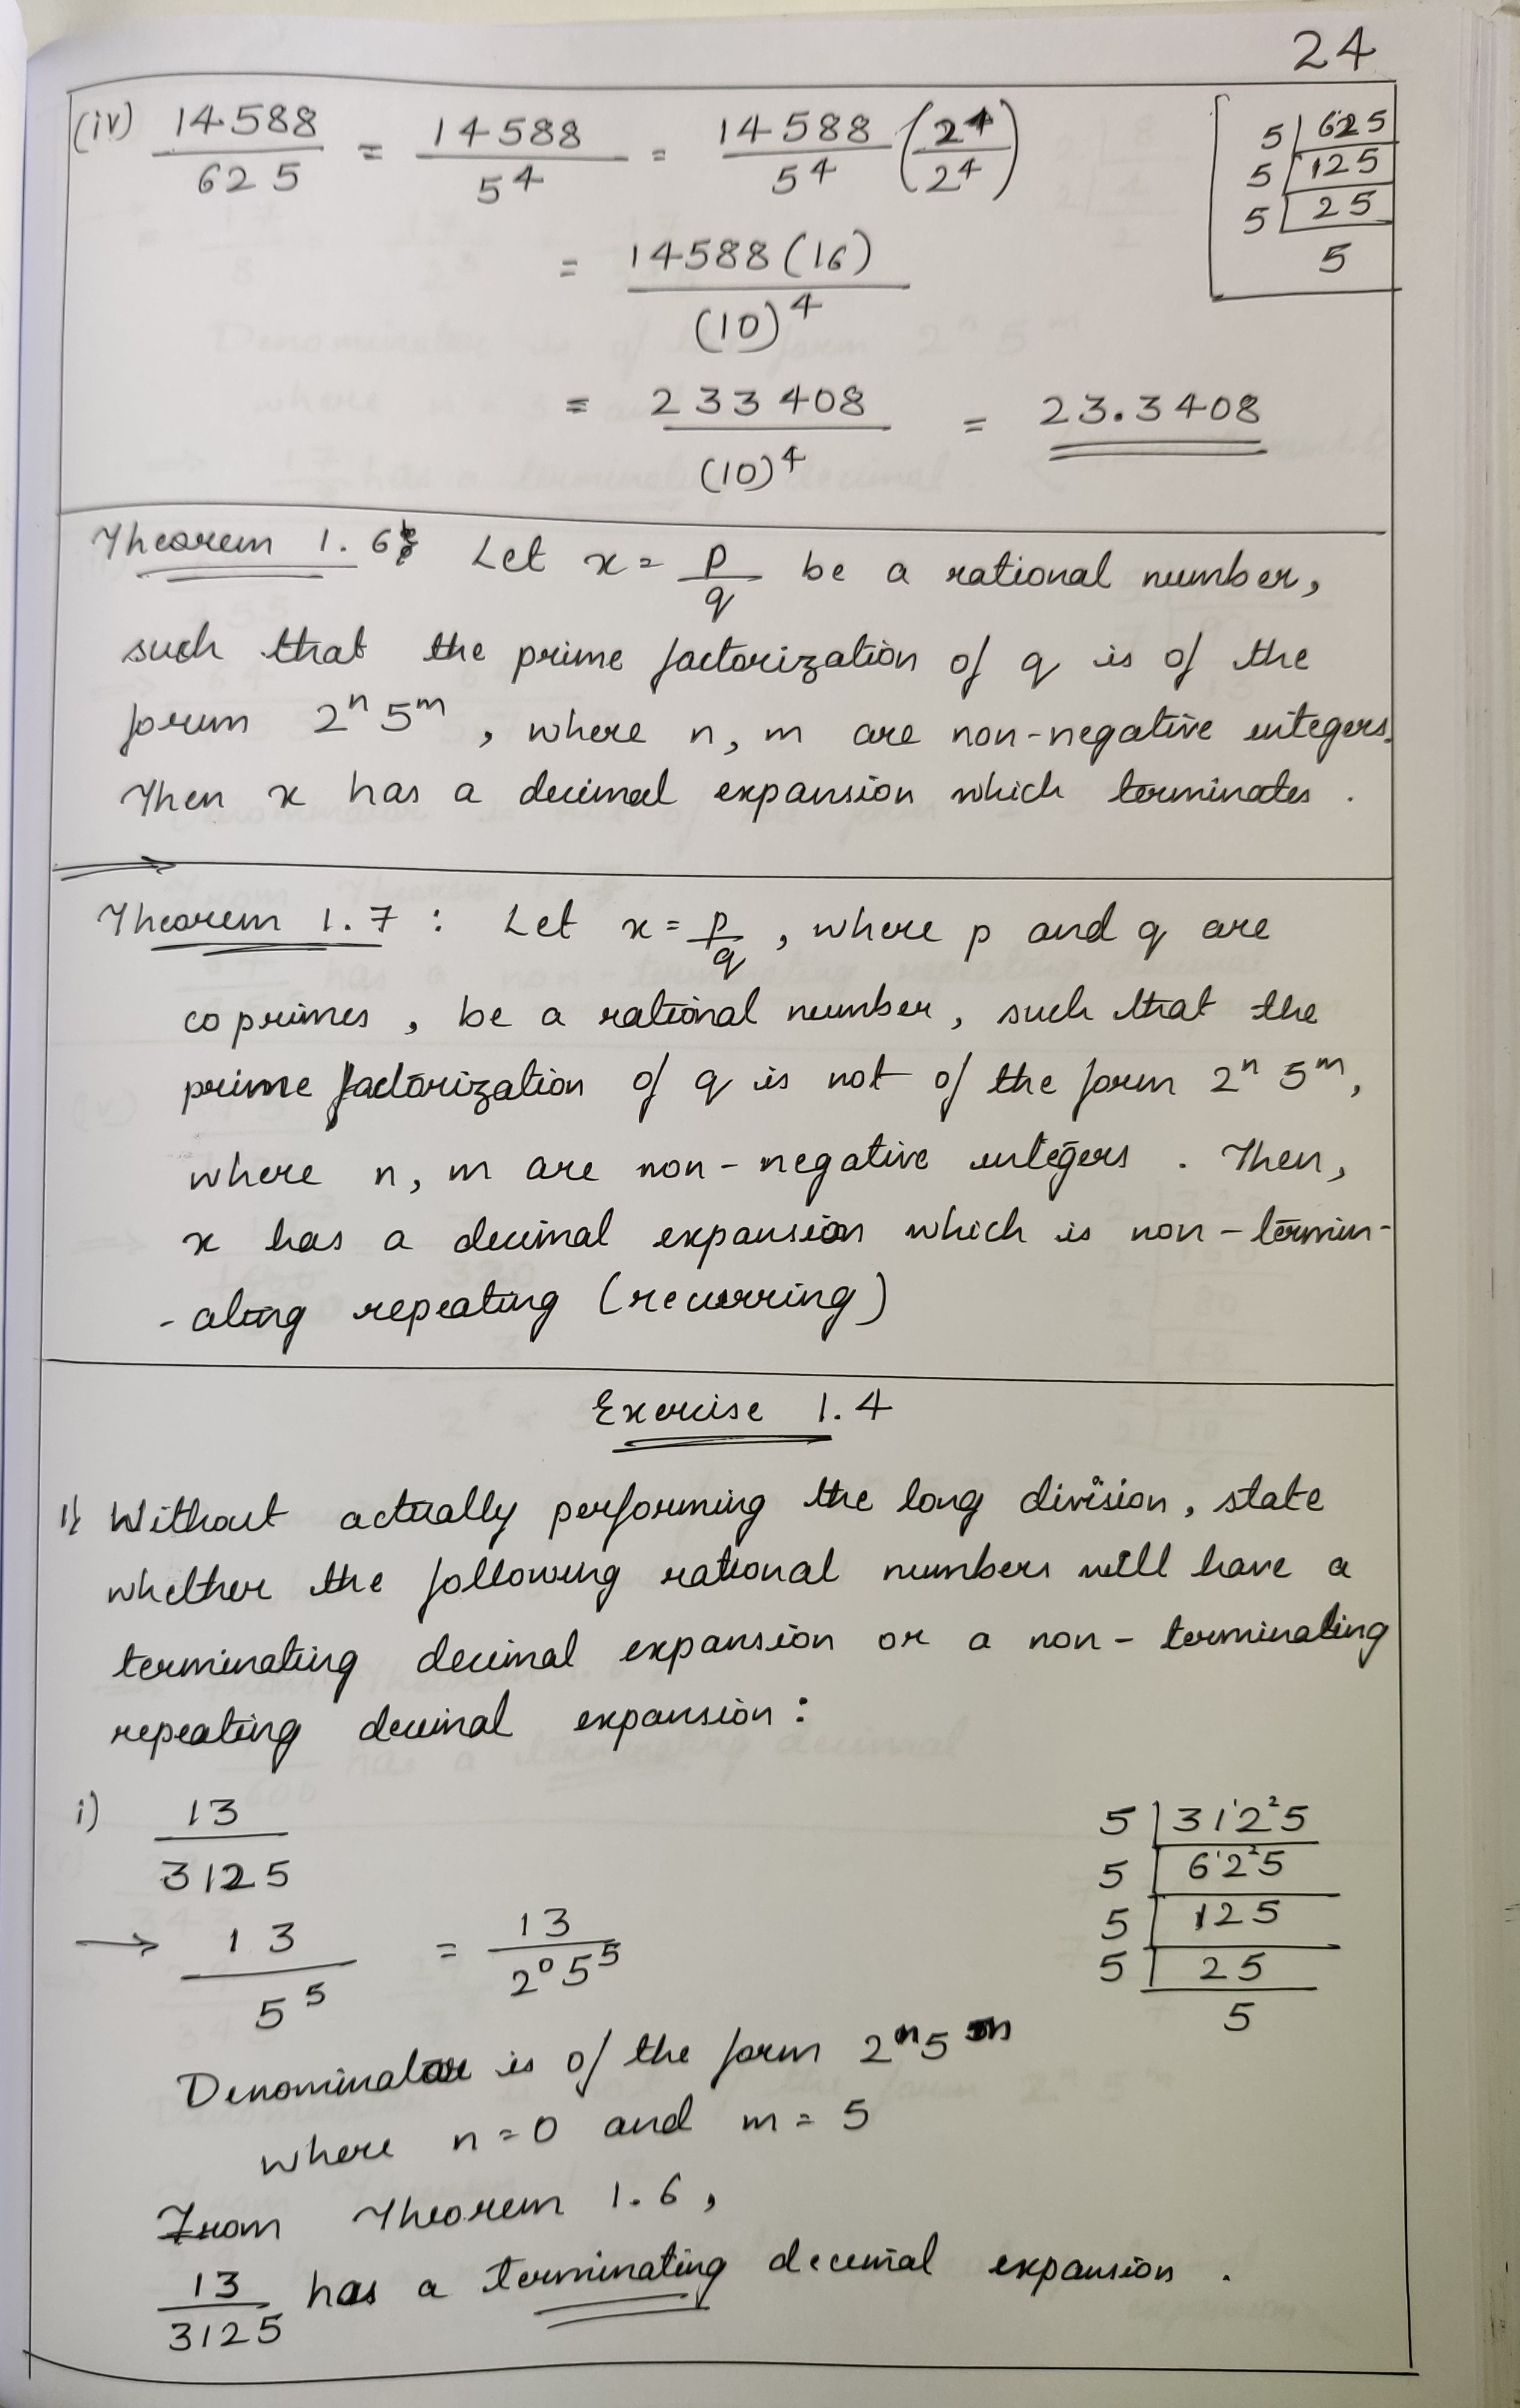 24
(iv) 14588/625 = 14588/5^4 = 14588/5^4 (2^4/2^4)
5 | 625
5 | 125
5 | 25
5
= 14588(16)/(10)^4
= 233408/(10)^4 = 23.3408
Theorem 1.6: Let x = p/q be a rational number,
such that the prime factorization of q is of the
form 2^n 5^m, where n, m are non-negative integers.
Then x has a decimal expansion which terminates.
Theorem 1.7: Let x = p/q, where p and q are
coprimes, be a rational number, such that the
prime factorization of q is not of the form 2^n 5^m,
where n, m are non-negative integers. Then,
x has a decimal expansion which is non-termin-
-ating repeating (recurring)
Exercise 1.4
1) Without actually performing the long division, state
whether the following rational numbers will have a
terminating decimal expansion or a non-terminating
repeating decimal expansion:
i) 13/3125
→ 13/5^5 = 13/2^0 5^5
5 | 3125
5 | 625
5 | 125
5 | 25
5
Denominator is of the form 2^n 5^m
where n = 0 and m = 5
From Theorem 1.6,
13/3125 has a terminating decimal expansion.